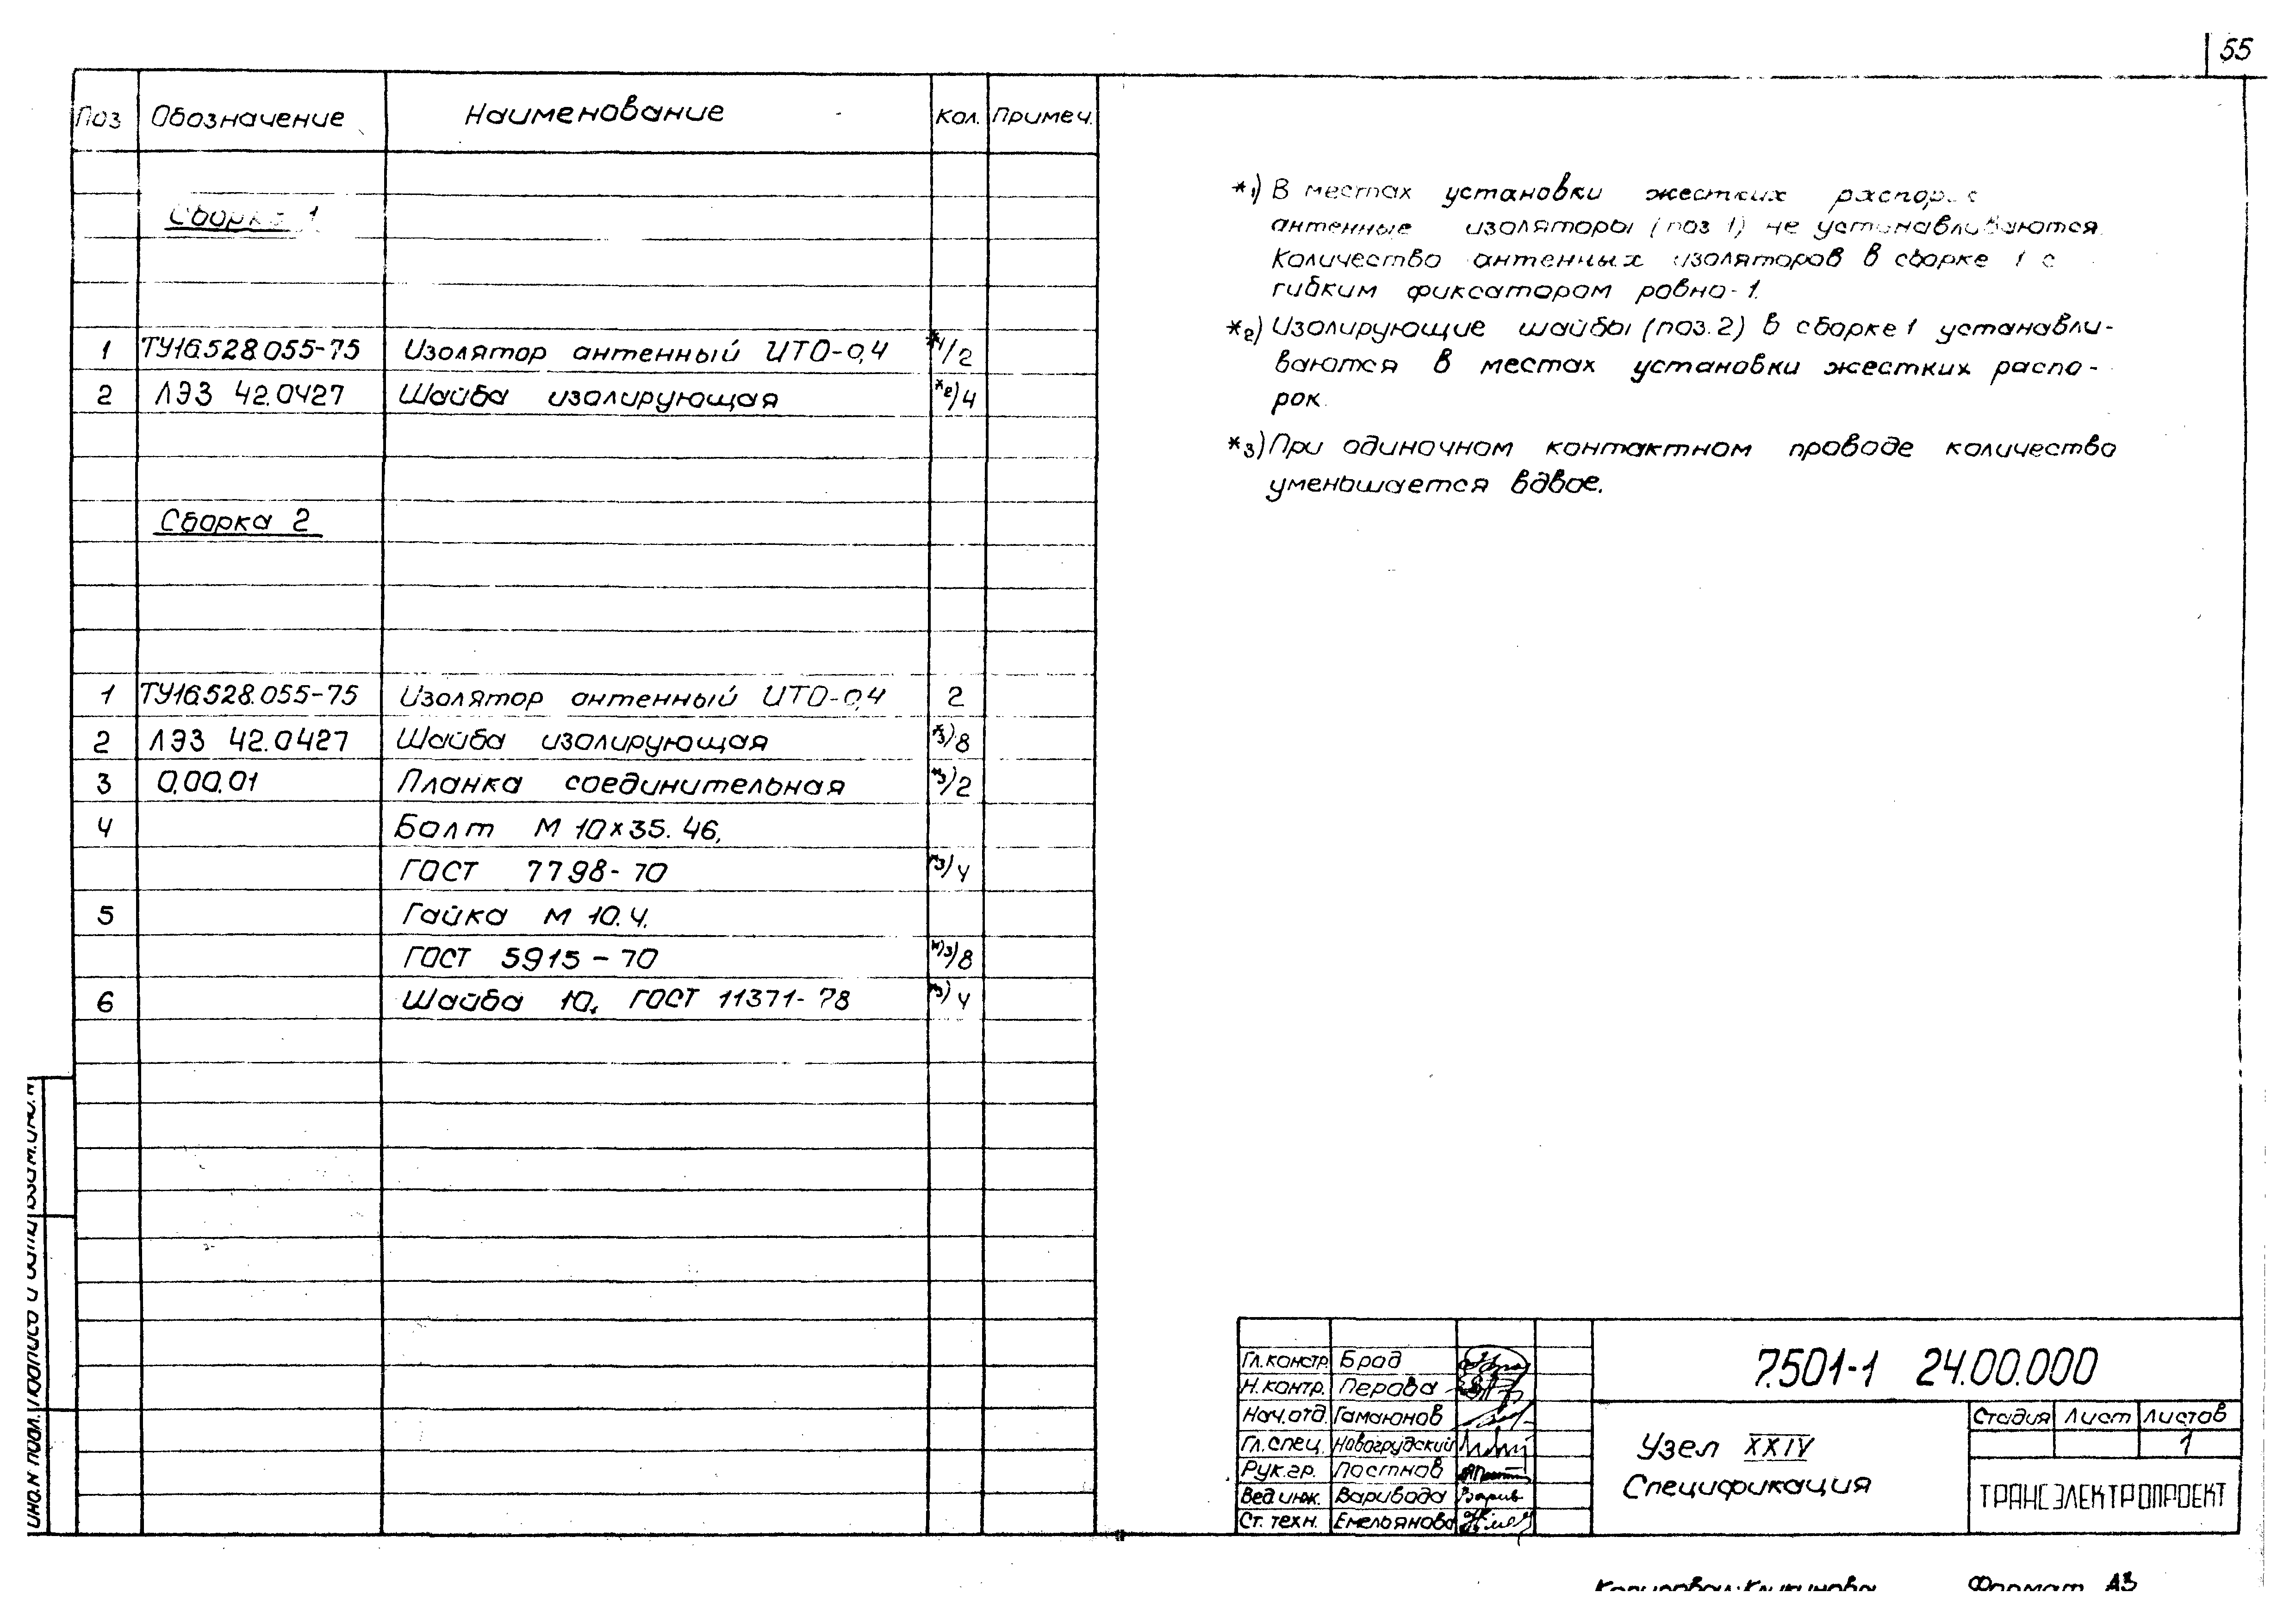 55
Поз Обозначение Наименование Кол. Примеч.
Сборка 1
1 ТУ16.528.055-75 Изолятор антенный ИТО-0,4 *1/2
2 ЛЭЗ 42.0427 Шайба изолирующая *2)4
Сборка 2
1 ТУ16.528.055-75 Изолятор антенный ИТО-0,4 2
2 ЛЭЗ 42.0427 Шайба изолирующая *3)8
3 0.00.01 Планка соединительная *3)2
4 Болт М 10х35.46,
ГОСТ 7798-70 *3)4
5 Гайка М 10.4.
ГОСТ 5915-70 *)3)8
6 Шайба 10, ГОСТ 11371-78 *3)4
*1) В местах установки жестких распорок
антенные изоляторы (поз 1) не устанавливаются.
Количество антенных изоляторов в сборке 1 с
гибким фиксатором равно-1.
*2) Изолирующие шайбы (поз.2) в сборке 1 устанавли-
ваются в местах установки жестких распо-
рок.
*3) При одиночном контактном проводе количество
уменьшается вдвое.
Гл.констр. Брод
Н.контр. Перова
Нач.отд. Гамаюнов
Гл.спец. Новогрудский
Рук.гр. Постнов
Вед.инж. Варивода
Ст. техн. Емельянова
7.501-1 24.00.000
Узел XXIV
Спецификация
Стадия Лист Листов
1
ТРАНСЭЛЕКТРОПРОЕКТ
Инв.N подл. Подпись и дата Взам.инв.N
Формат А3